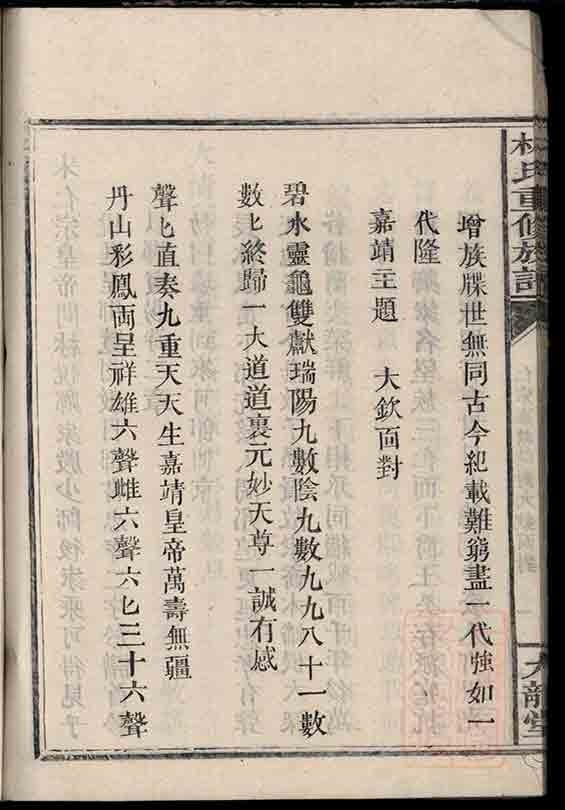 林氏重修族記
九龍堂
增族牒世無同古今紀載難窮盡一代強如一
代隆
嘉靖主題 大欽面對
碧水靈龜雙獻瑞陽九數陰九數九九八十一數
數匕終歸一大道道裏元妙天尊一誠有感
丹山彩鳳両呈祥雄六聲雌六聲六匕三十六聲
聲匕直奏九重天天生嘉靖皇帝萬壽無疆